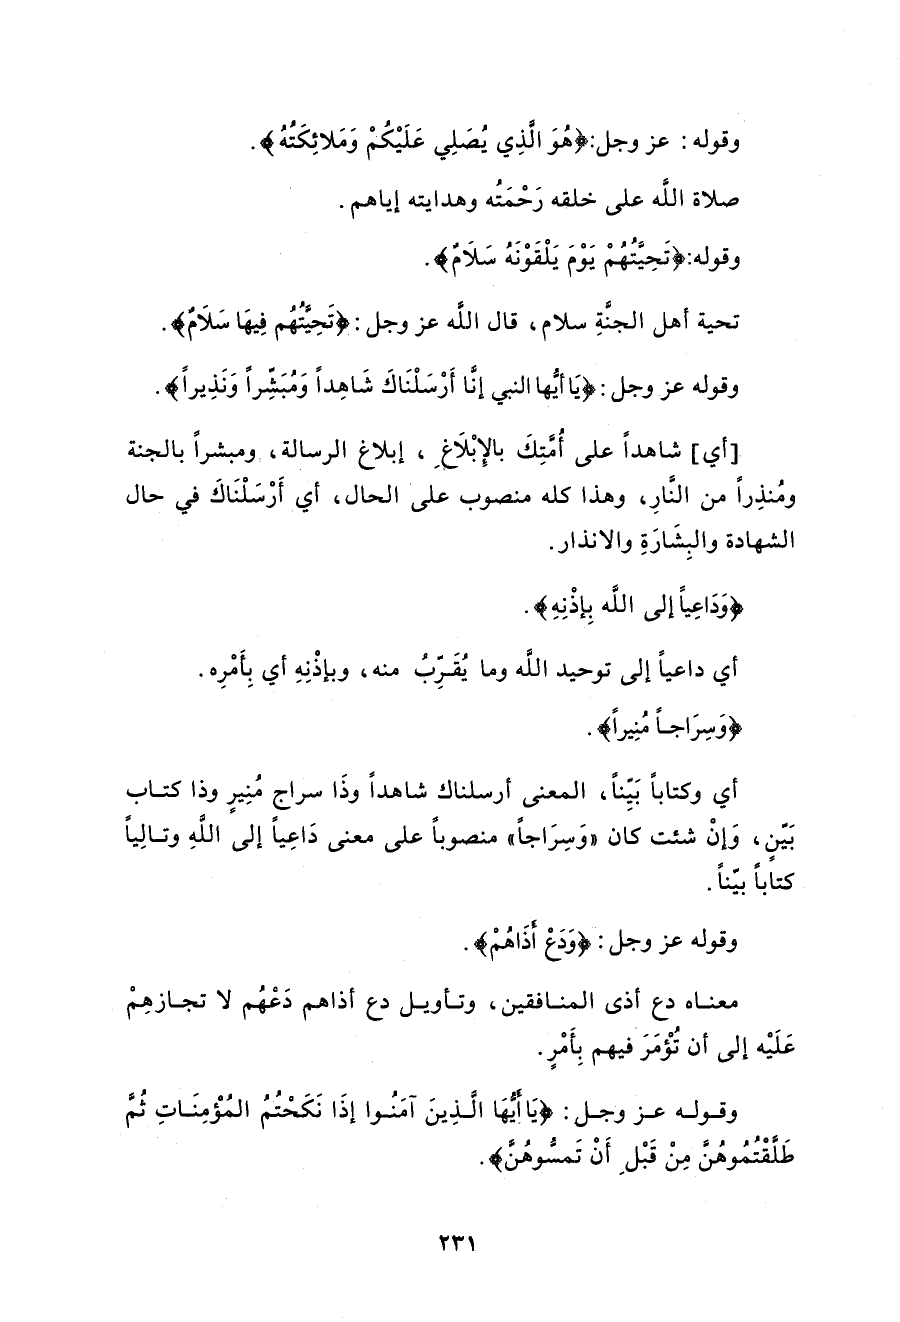 وقوله : عز وجل:﴿هُوَ الَّذِي يُصَلِي عَلَيْكُمْ وَمَلائِكَتُهُ﴾.
صلاة اللَّه على خلقه رَحْمَتُه وهدايته إياهم .
وقوله:﴿تَحِيَّتُهُمْ يَوْمَ يَلْقَوْنَهُ سَلَامٌ﴾.
تحية أهل الجنَّةِ سلام، قال اللَّه عز وجل: ﴿تَحِيَّتُهُم فِيهَا سَلَامٌ﴾.
وقوله عز وجل: ﴿يَا أيُّها النبي إنَّا أَرْسَلْنَاكَ شَاهِداً وَمُبَشِّراً وَنَذِيراً﴾.
[أي] شاهداً على أُمَّتِكَ بالإِبْلَاغِ ، إبلاغ الرسالة، ومبشراً بالجنة
ومُنذِراً من النَّارِ، وهذا كله منصوب على الحال، أي أَرْسَلْنَاكَ في حال
الشهادة والبِشَارَةِ والانذار.
﴿وَدَاعِياً إلى اللَّه بِإذْنِهِ﴾.
أي داعياً إلى توحيد اللَّه وما يُقَرِّبُ منه، وبإذْنِهِ أي بِأَمْرِه.
﴿وَسِرَاجاً مُنِيراً﴾.
أي وكتاباً بَيِّناً، المعنى أرسلناك شاهداً وذَا سراج مُنِيرٍ وذا كتاب
بَيِّنٍ، وَإنْ شئت كان «وَسِرَاجاً» منصوباً على معنى دَاعِياً إلى اللَّهِ وتالِياً
كتاباً بيّناً.
وقوله عز وجل: ﴿وَدَعْ أَذَاهُمْ﴾.
معناه دع أذى المنافقين، وتأويل دع أذاهم دَعْهُم لا تجازهِمْ
عَلَيْه إلى أن تُؤْمَرَ فيهم بِأَمْرٍ.
وقوله عز وجل: ﴿يَا أَيُّهَا الَّذِينَ آمَنُوا إذَا نَكَحْتُمُ المُؤْمِنَاتِ ثُمَّ
طَلَّقْتُمُوهُنَّ مِنْ قَبْلِ أَنْ تَمسُّوهُنَّ﴾.
٢٣١